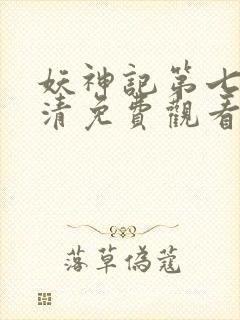 妖神記第七
清免費觀看
落草偽蔻